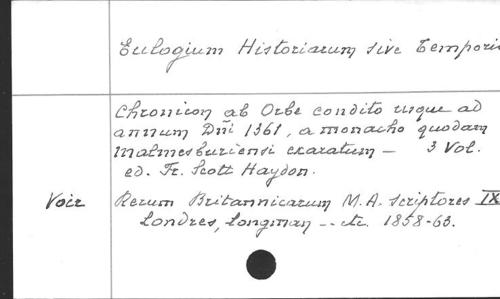 Eulogium Historiarum sive Temporis
Chronicon ab Orbe condito usque ad
annum Dñi 1361, a monacho quodam
Malmesburiensi exaratum — 3 Vol.
ed. Fr. Scott Haydon.
Voir Rerum Britannicarum M. A. Scriptores IX
Londres, Longman -- etc. 1858-63.